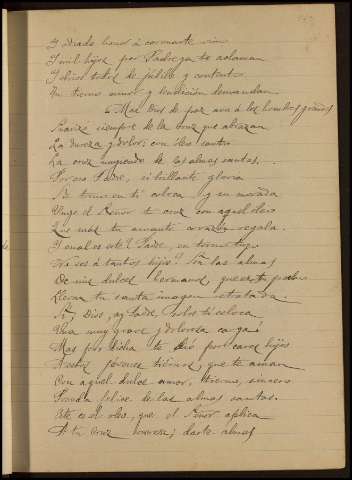 Y mil hijos por Padre ya te aclaman
Y otros todos de júbilo y contento
Tu tierno amor y bendición demandan.
Mas Dios de paz aun á los hombres
Suaviza siempre de la cruz que abrazan
La dureza y dolor; con óleo santo
La cruz ungiendo de las almas santas...
Por eso Padre, si brillante gloria
De trono en ti coloca y en morada
Unge el Señor tu cruz con aquel óleo
Que más tu amante corazón regala.
Y cual es este? Padre, en torno tuyo
Ves á tantos hijos? Son las almas
De mis dulces hermanos, que en tu
Llevan tu santa imagen retratada.
Si, Dios, ay Padre sobre ti coloca
Una muy grave y dolorosa carga;
Mas por dicha te dió por caros hijos
A estos jóvenes tiernos, que te aman
Con aquel dulce amor, tierno, sincero
Prenda feliz de las almas santas.
Este es el óleo, que el Señor aplica
A tu cruz ; darte almas